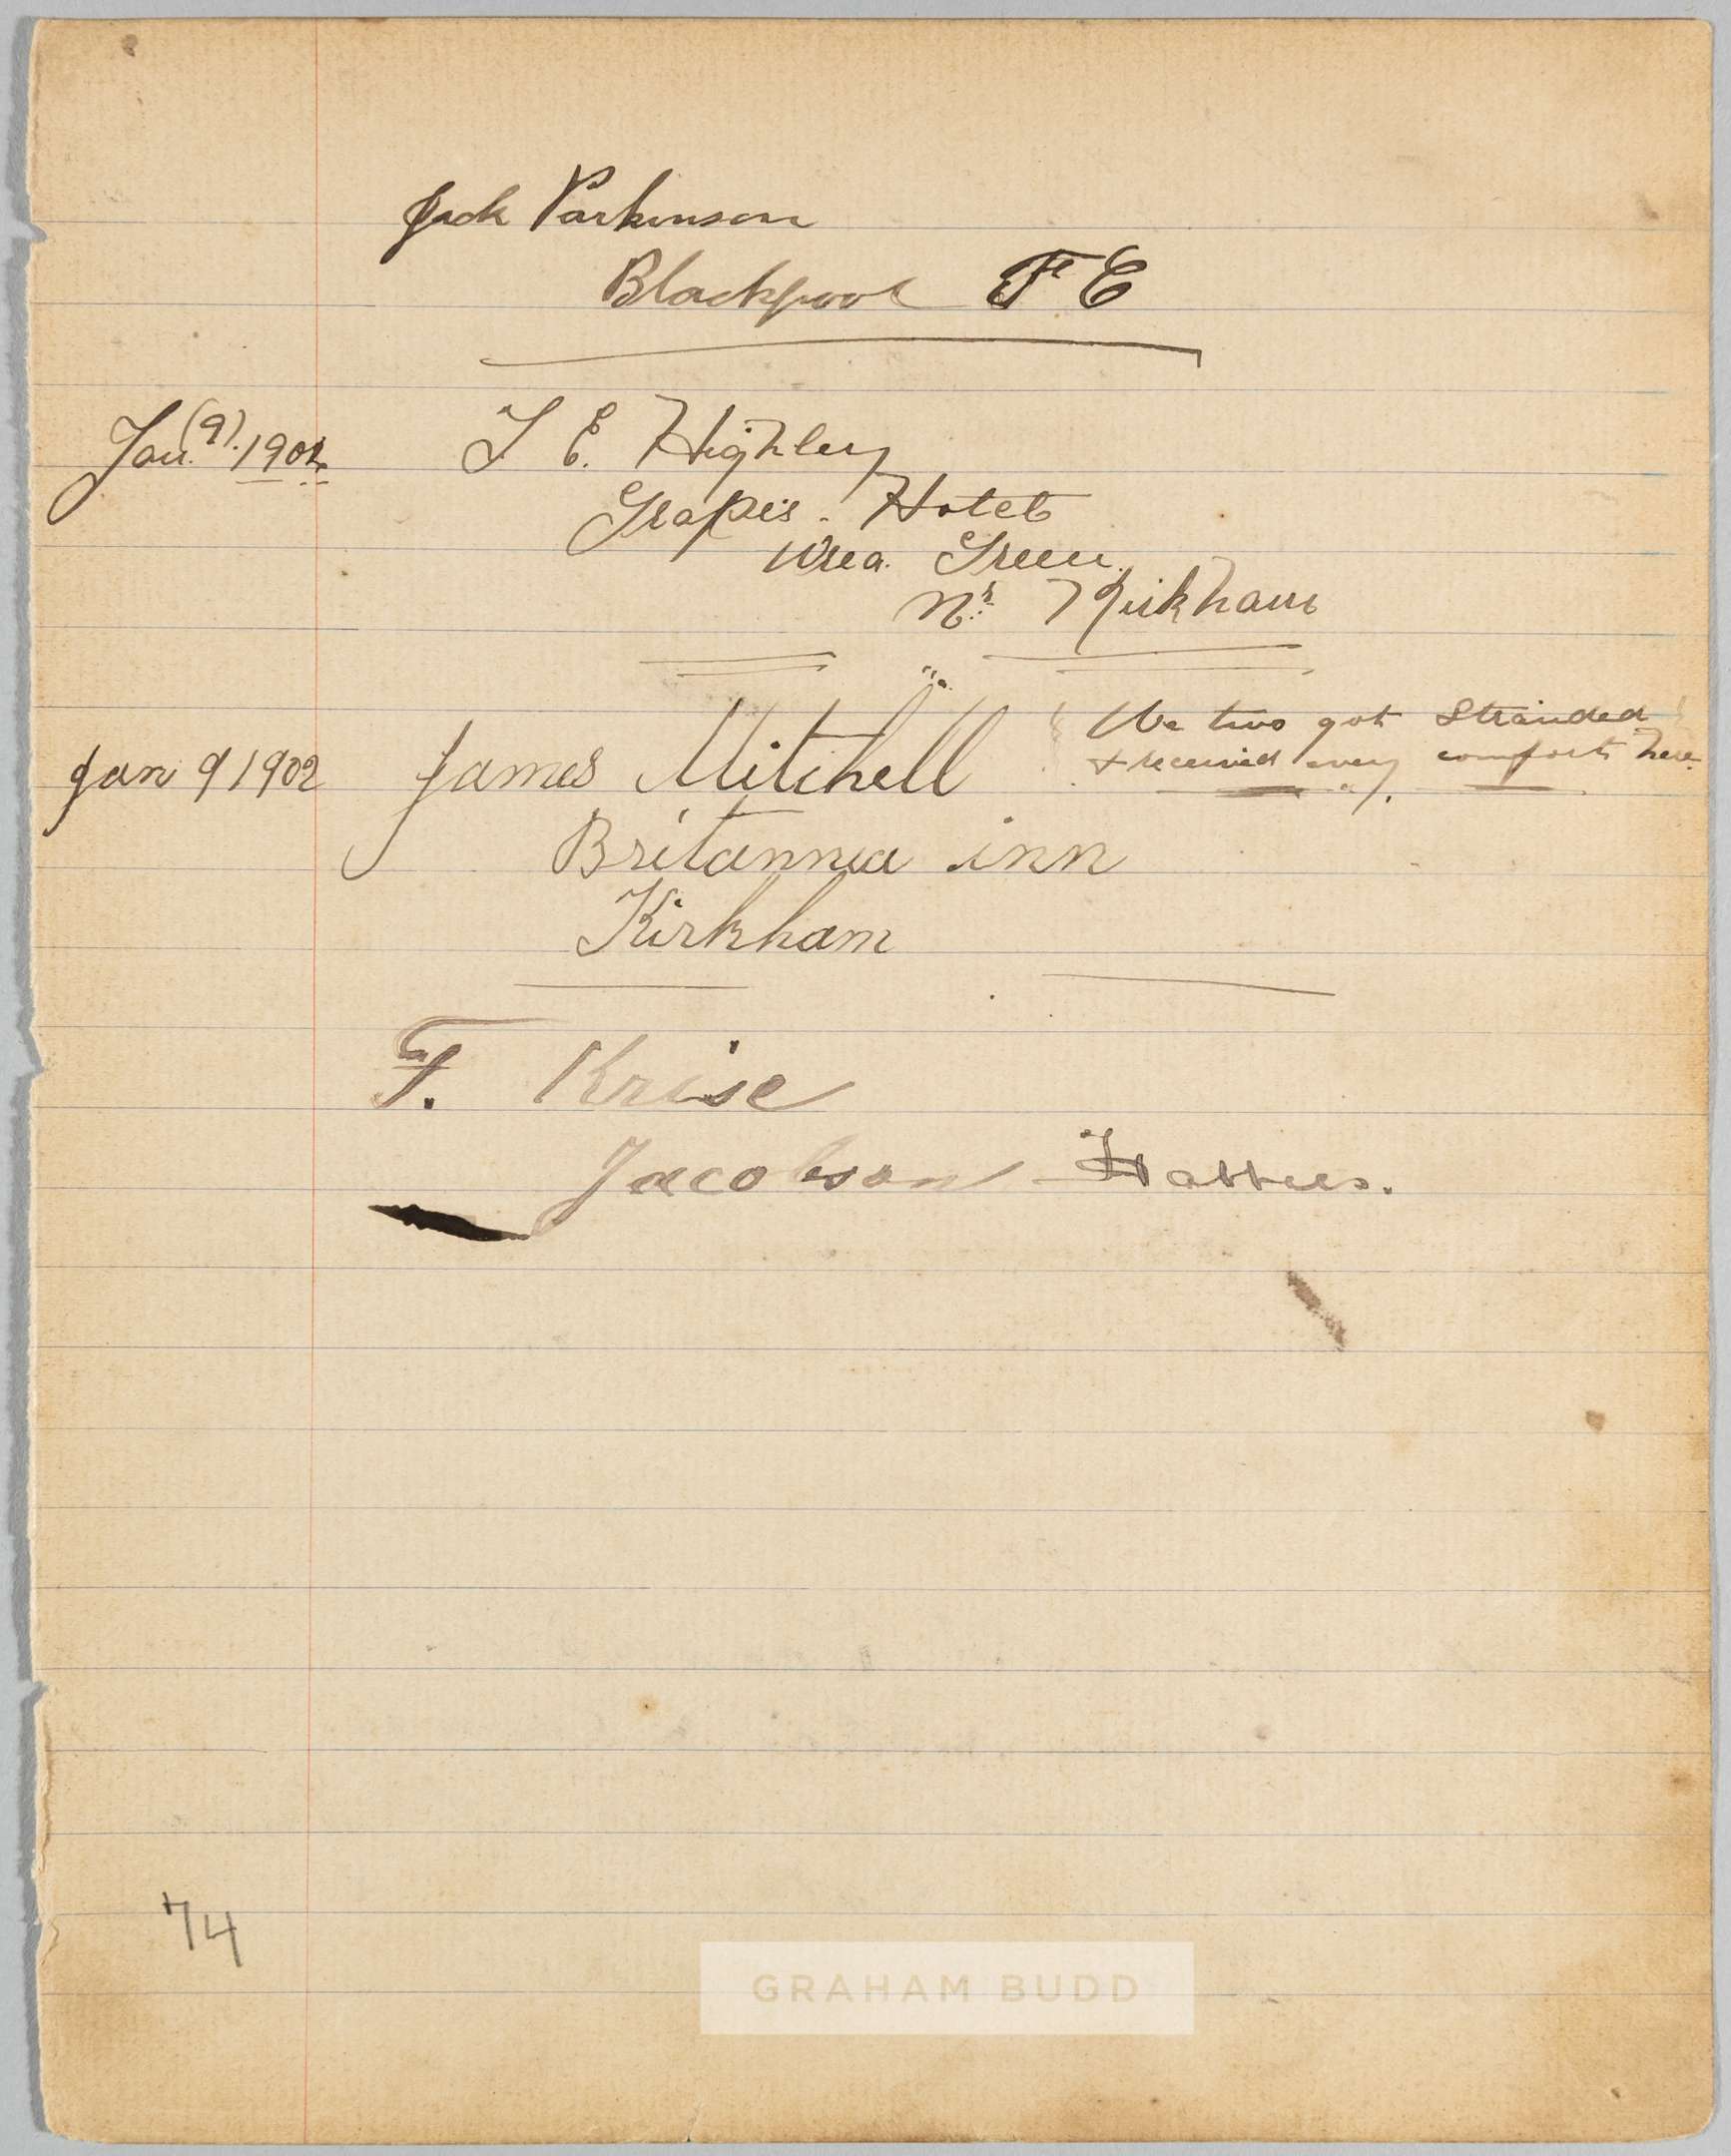 Jack Parkinson
Blackpool F C
Jan. (9). 1902
T E. Highley
Grapes. Hotel
Wrea. Green.
Nr. Kirkham
Jan 9 1902
James Mitchell
We two got Stranded
& received every comfort here.
Britannia inn
Kirkham
F. Krise
Jacobson
74
GRAHAM BUDD